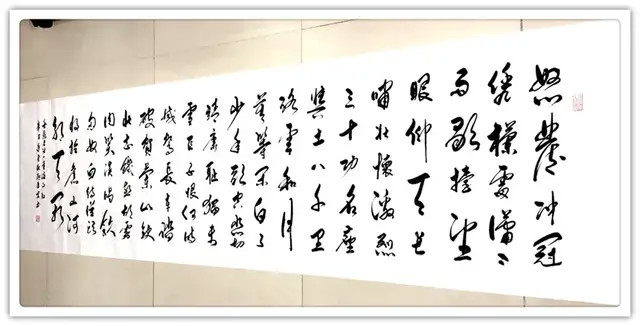 怒髮冲冠
凭欄處瀟々
雨歇抬望
眼仰天長
嘯壮懷激烈
三十功名塵
與土八千里
路雲和月
莫等閑白了
少年頭空悲切
靖康耻猶未
雪臣子恨何時
滅駕長車踏
破賀蘭山缺
壮志飢餐胡虜
肉笑談渴飲
匈奴血待從頭
收拾舊山河
朝天闕